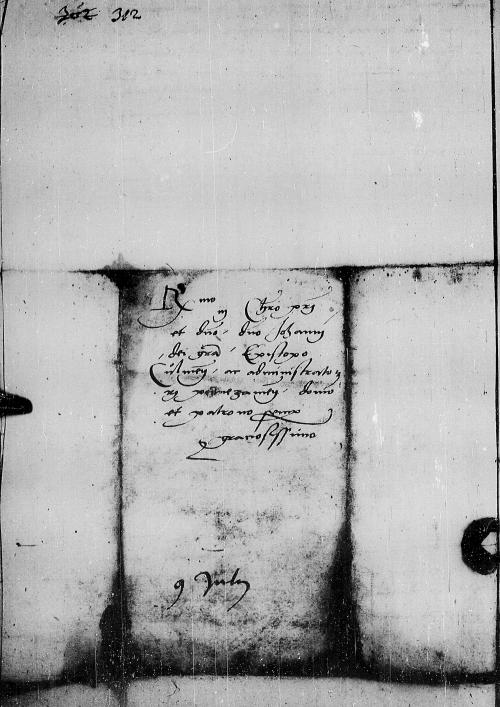 312 312
Rmo in Chro pri
et dno, dno Johanni
dei gra Episcopo
Culmen, ac administratori
pomezanien, domino
et patrono semper
graciosissimo
9 Julii